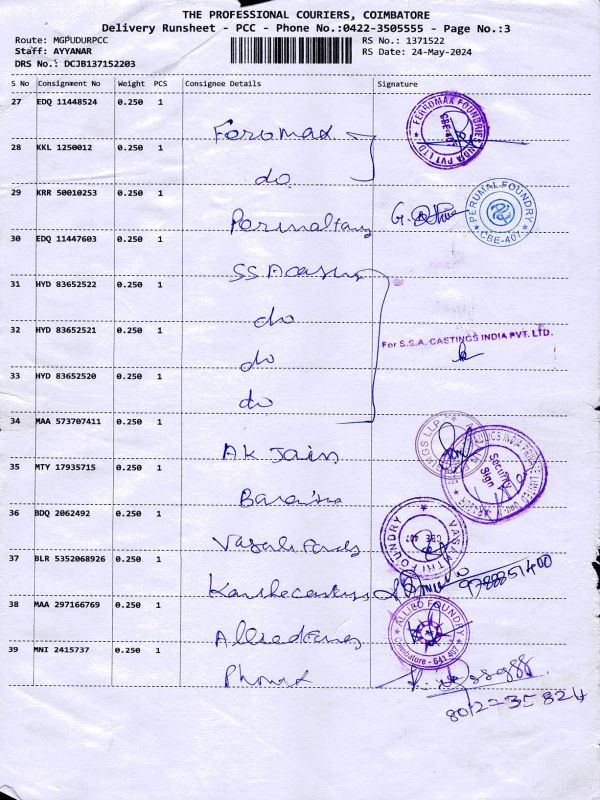 THE PROFESSIONAL COURIERS, COIMBATORE
Delivery Runsheet - PCC - Phone No.:0422-3505555 - Page No.:3
Route: MGPUDURPCC RS No.: 1371522
Staff: AYYANAR RS Date: 24-May-2024
DRS No.: DCJB137152203
S No Consignment No Weight PCS Consignee Details Signature
27 EDQ 11448524 0.250 1
Foromax
FERROMAX FOUNDRIES INDIA PVT LTD CBE-407
28 KKL 1250012 0.250 1
do
29 KRR 50010253 0.250 1
G.
PERUMAL FOUNDRY CBE-407
30 EDQ 11447603 0.250 1
SSA
31 HYD 83652522 0.250 1
do
32 HYD 83652521 0.250 1
do
For S.S.A. CASTINGS INDIA PVT. LTD.
33 HYD 83652520 0.250 1
do
34 MAA 573707411 0.250 1
AK Jain
LLP
INDIA PRIVATE LIMITED
Security Sign
35 MTY 17935715 0.250 1
36 BDQ 2062492 0.250 1
VASANTHI FOUNDRY CBE 407
37 BLR 5352068926 0.250 1
9788851400
38 MAA 297166769 0.250 1
ALLIBO FOUNDRY Coimbatore - 641 407
39 MNI 2415737 0.250 1
8012235824